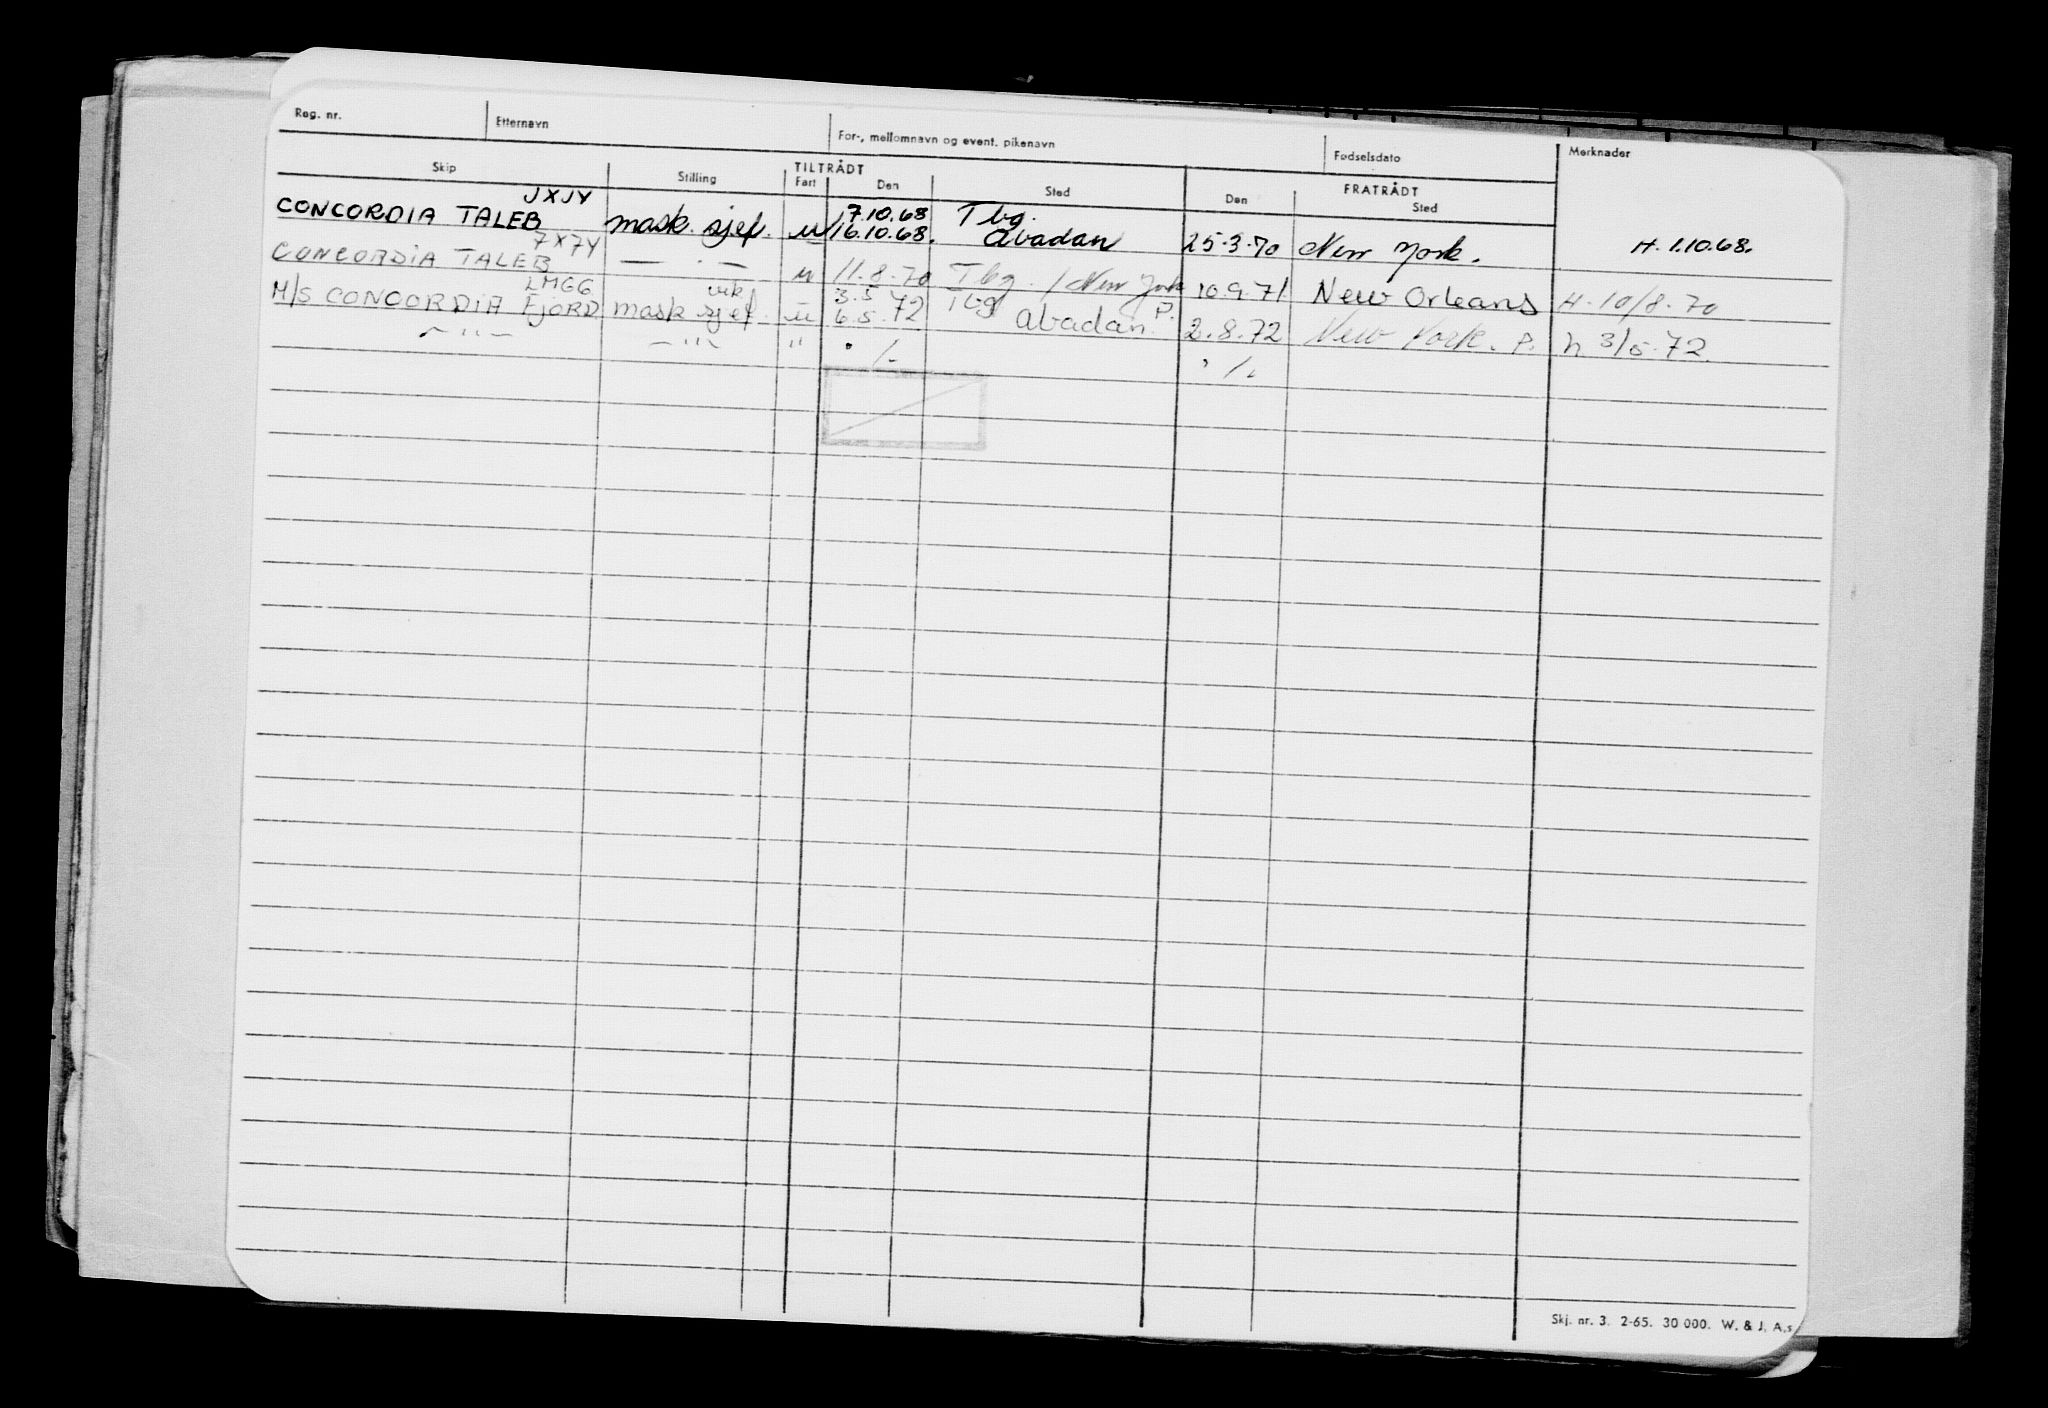 Reg. nr. Etternavn For-, mellomnavn og event. pikenavn Fødselsdato Merknader
Skip Stilling TILTRÅDT FRATRÅDT
Fart Den Sted Den Sted
JXJY
CONCORDIA TALEB mask. sjef. u 7.10.68 Tbg.
16.10.68. Abadan 25.3.70 New York. H. 1.10.68.
7X7Y
CONCORDIA TALEB — . — u 11.8.70 Tbg. / New York 10.9.71 New Orleans H. 10/8.70
LMGG
M/S CONCORDIA FJORD mask sjef vik u 3.5 Tbg P.
6.5.72 Abadan. 2.8.72 New York. P. h 3/5.72.
— " — — " — " " /- " /-
Skj. nr. 3. 2-65. 30 000. W. & J. A.s